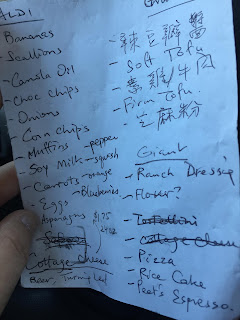 ALDI
Bananas
- Scallions
- Canola Oil
- Choc Chips
- Onions
- Corn Chips
- Muffins - pepper
- Soy Milk - squash
- Carrots - orange
- Eggs - Blueberries
Asparagus $1.75
Cottage Cheese
Beer,
- 辣豆瓣醬
- Soft Tofu
- 雞/牛肉
- Firm Tofu.
- 芝麻粉
Giant
- Ranch Dressing
- Flour?
- Tortellini
- Cottage Cheese
- Pizza
- Rice Cake
- Peet's Espresso.